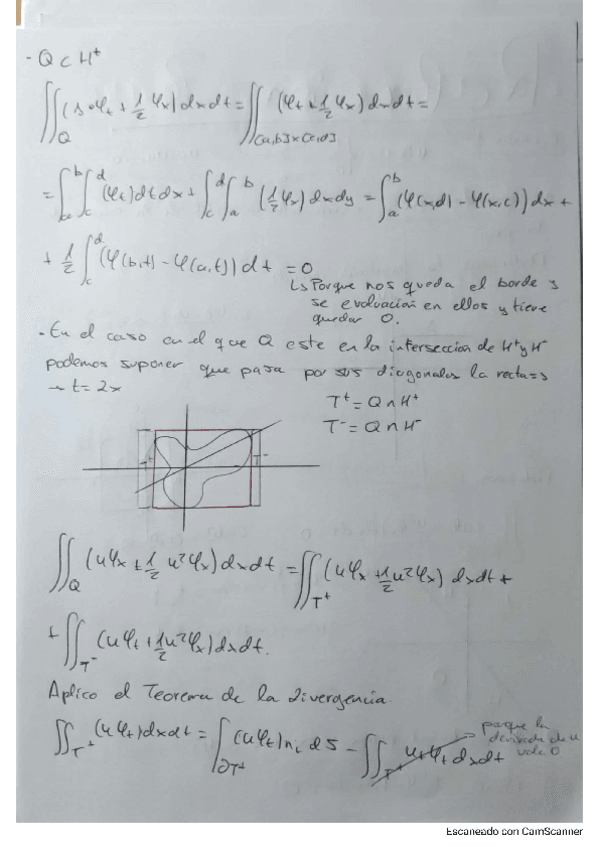 - Q ⊂ H⁺
∬_Q (1·φ_t + 1/2 φ_x) dxdt = ∬_{[a,b]×[c,d]} (φ_t + 1/2 φ_x) dxdt =
= ∫_a^b ∫_c^d (φ_t) dt dx + ∫_c^d ∫_a^b (1/2 φ_x) dx dy = ∫_a^b (φ(x,d) - φ(x,c)) dx +
+ 1/2 ∫_c^d (φ(b,t) - φ(a,t)) dt = 0
↳ Porque nos queda el borde y
se evaluacian en ellos y tiene
quedar 0.
- En el caso en el que Q este en la interseccion de H⁺ y H⁻
podemos suponer que pasa por sus diagonales la recta
→ t = 2x
T⁺ = Q ∩ H⁺
T⁻ = Q ∩ H⁻
T⁻ T⁻
∬_Q (uφ_x + 1/2 u²φ_x) dxdt = ∬_{T⁺} (uφ_x + 1/2 u²φ_x) dxdt +
+ ∬_{T⁻} (uφ_t + 1/2 u²φ_x) dxdt.
Aplico el Teorema de la divergencia
∬_{T⁺} (uφ_t) dxdt = ∫_{∂T⁺} (uφ_t) n_i dS - ∬_{T⁺} u_tφ_t dxdt
porque la
derivada de u
vale 0
Escaneado con CamScanner